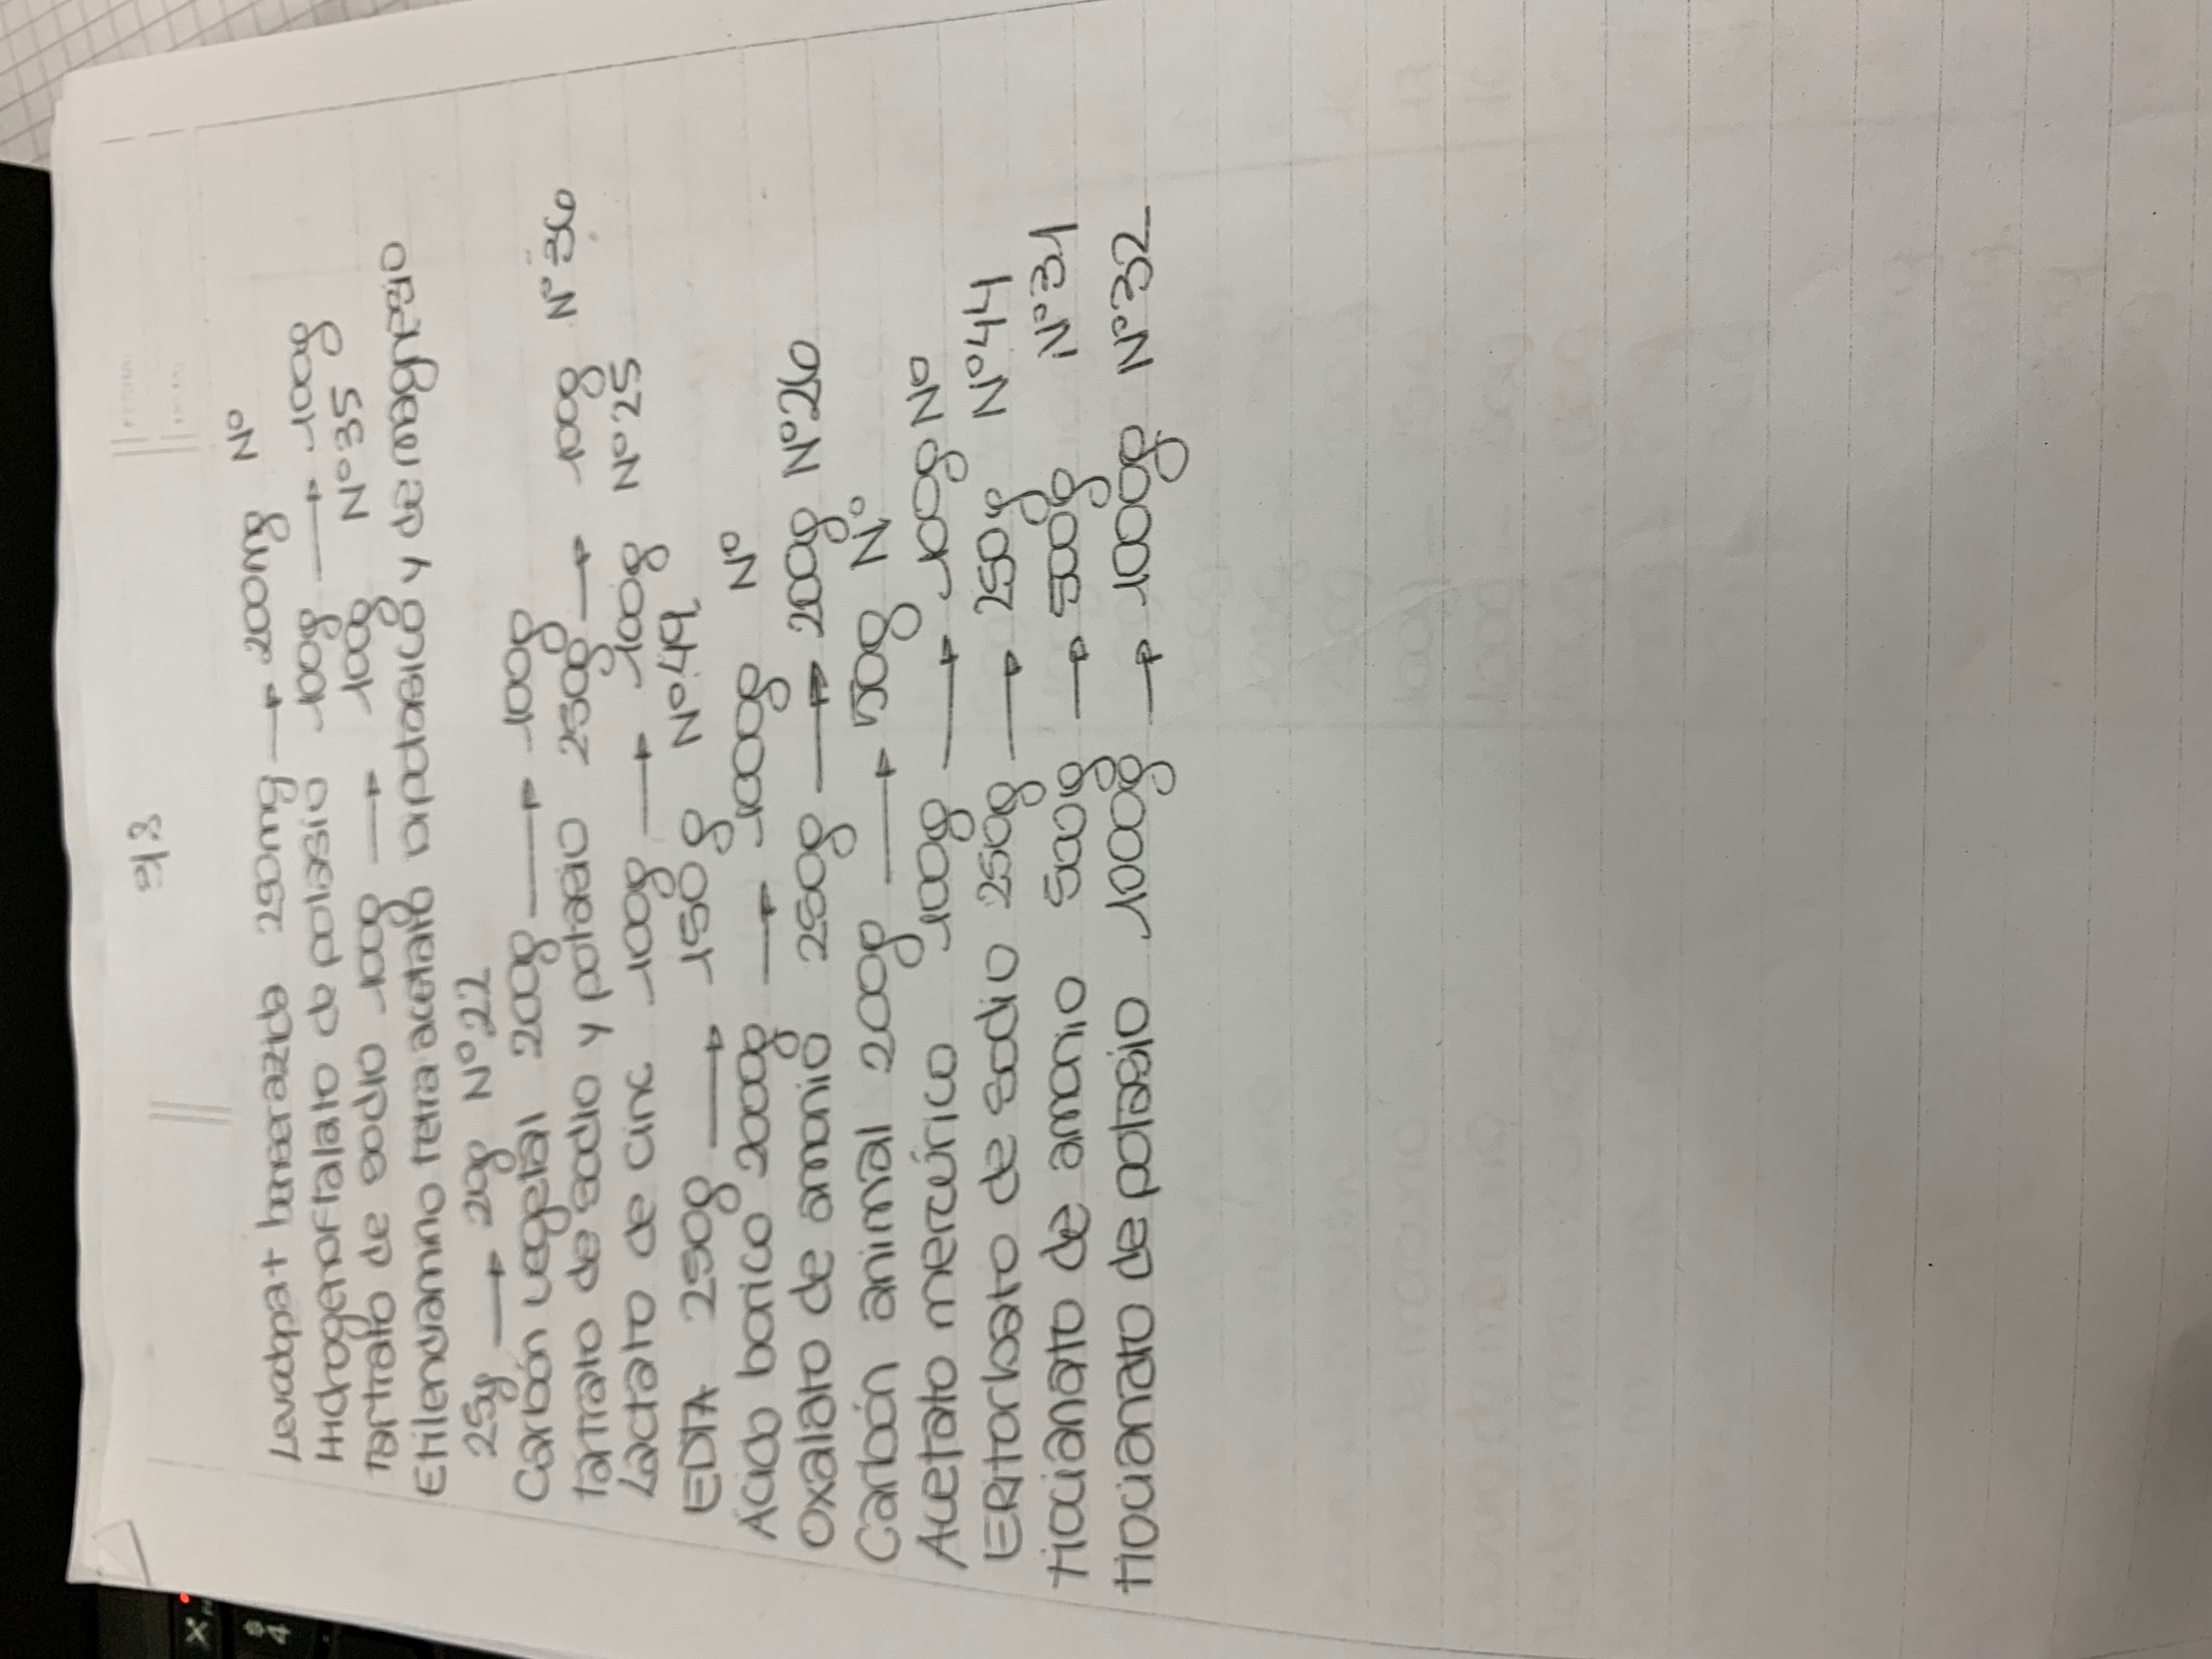 913
Levodopa + benserazida 250mg → 200mg N°
Hidrogenoftalato de potasio 100g → 100g
Tartrato de sodio 100g → 100g N°35
Etilendiamino tetra acetato dipotasico y de magnesio
25g → 20g N°22
Carbón vegetal 200g → 100g
Tartrato de sodio y potasio 250g → 100g N°36
Lactato de cinc 100g → 100g N°25
EDTA 250g → 150g N°49
Ácido borico 2000g → 1000g N°
Oxalato de amonio 250g → 200g N°26
Carbón animal 200g → 50g N°
Acetato mercúrico 100g → 100g N°
ERitorbato de sodio 250g → 250g N°44
Tiocianato de amonio 500g → 500g N°31
Tiocianato de potasio 1000g → 1000g N°32